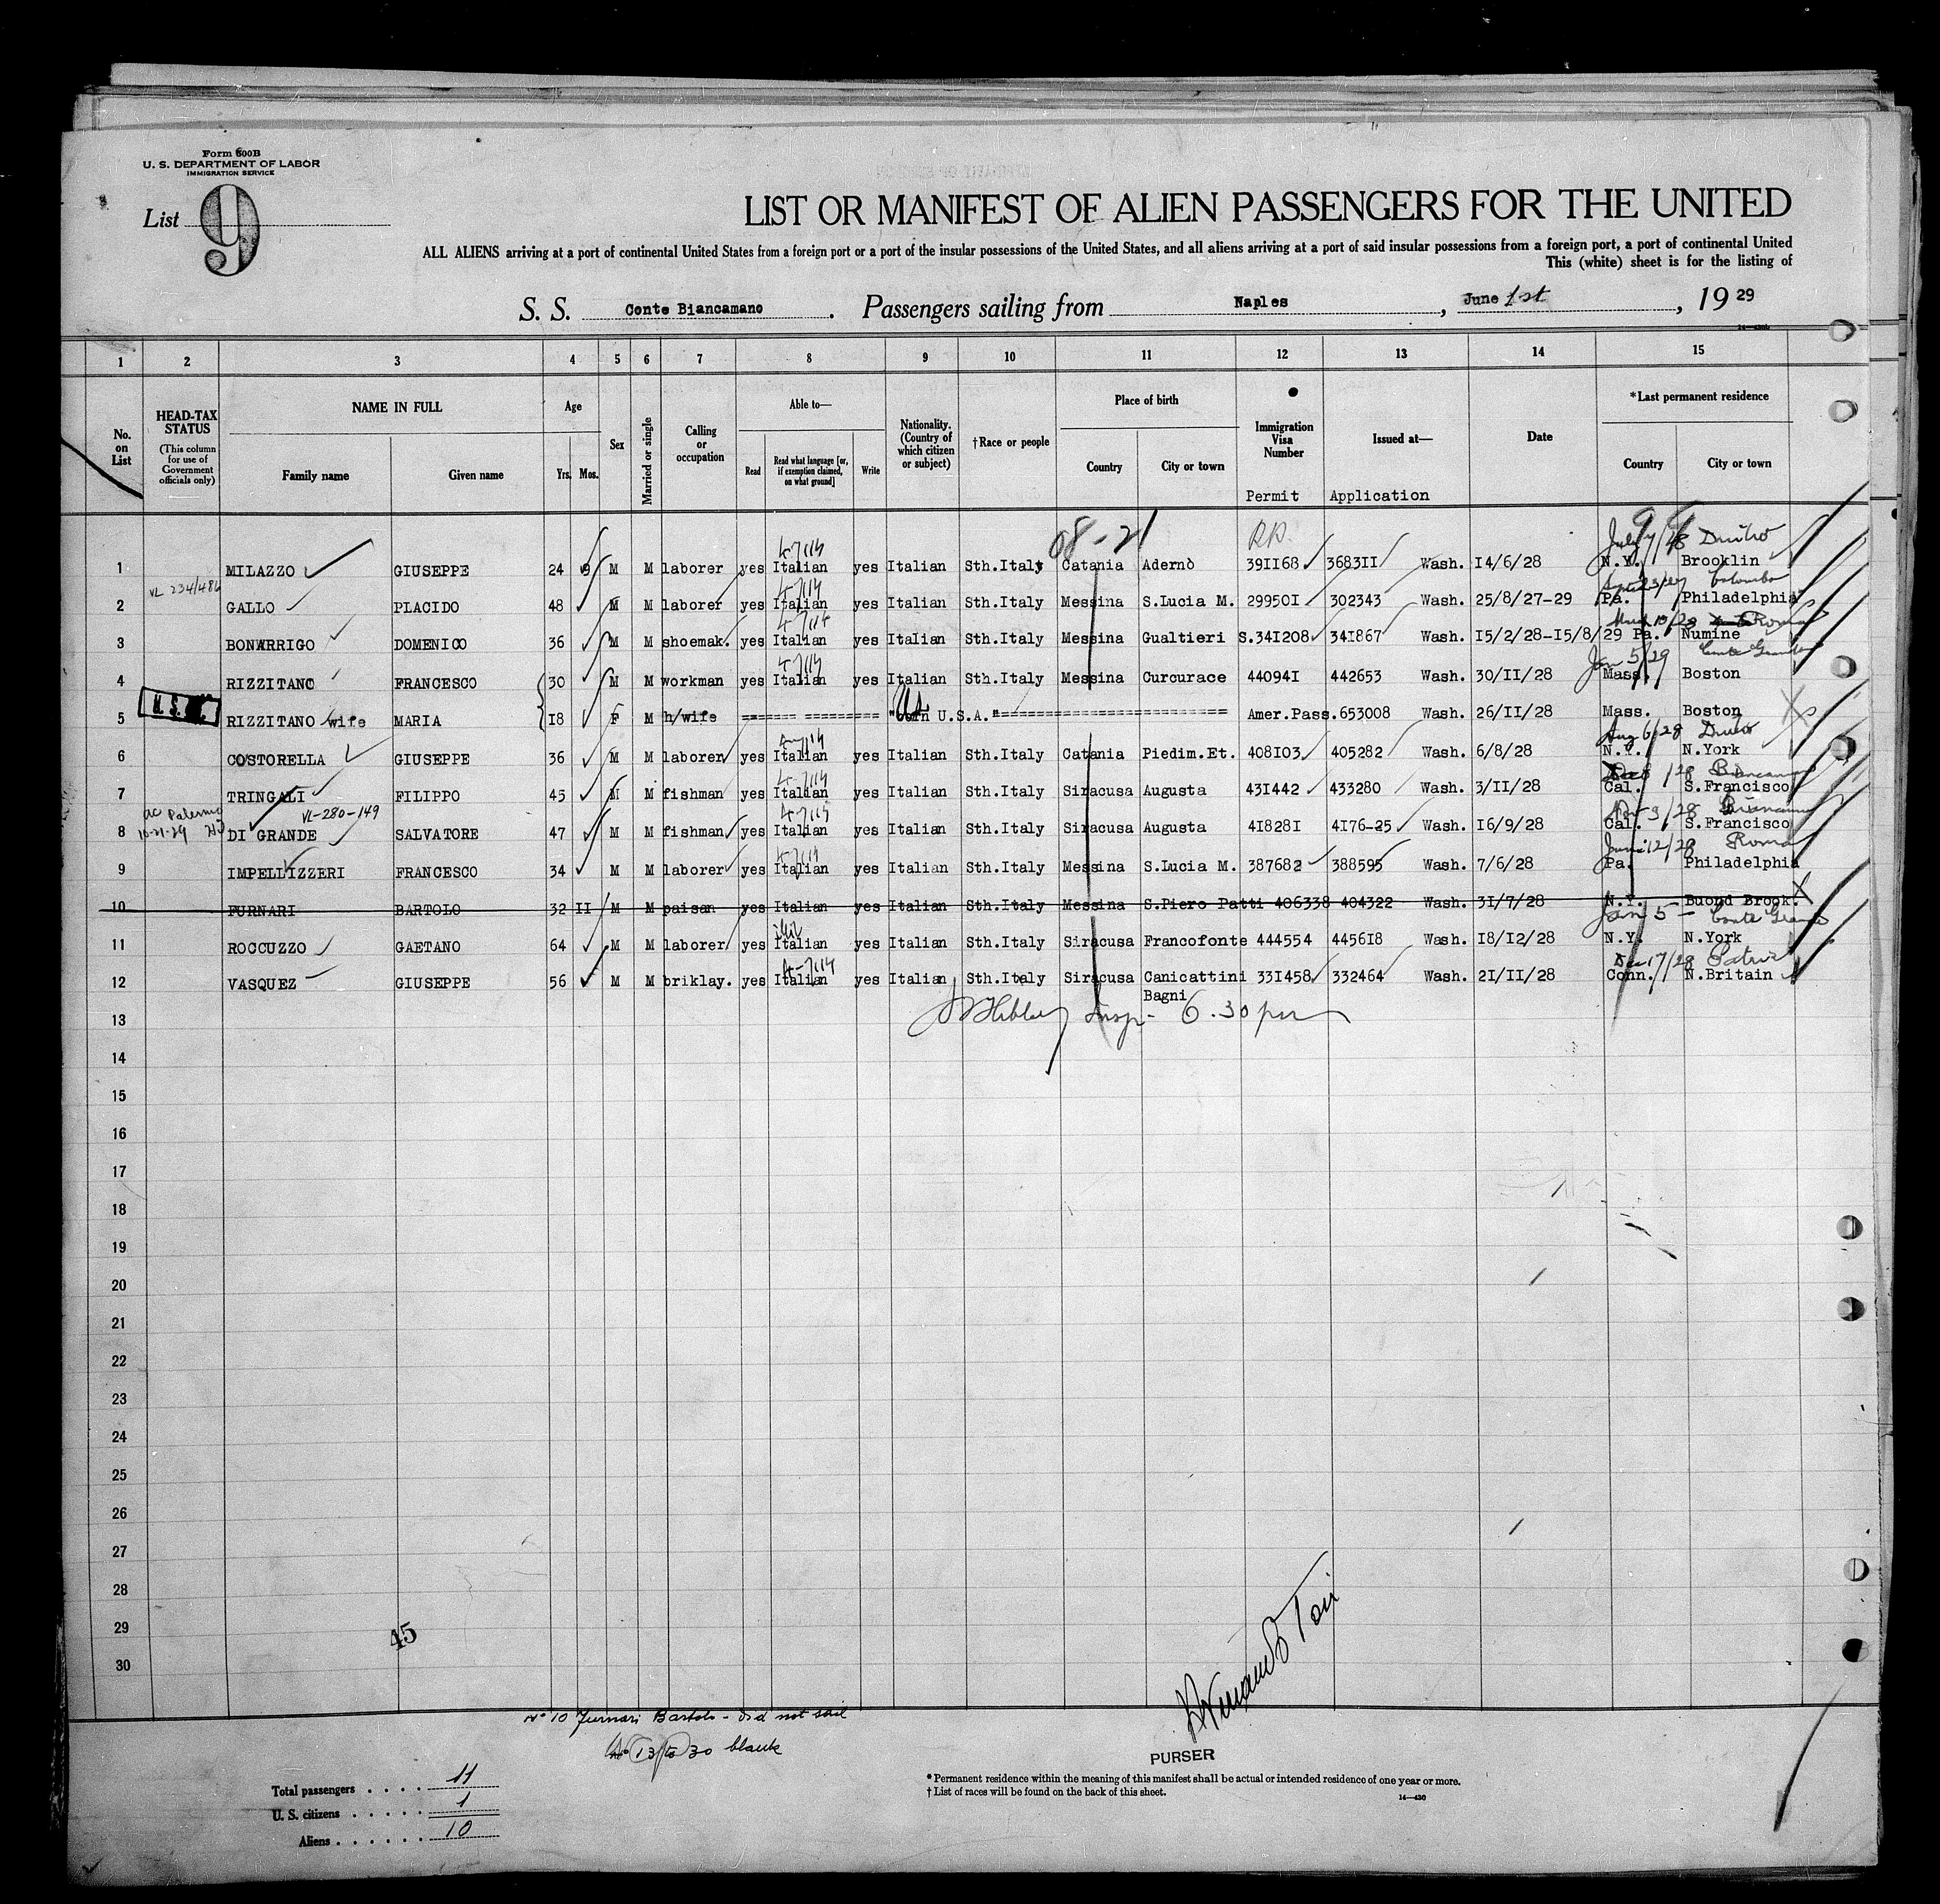 Form 500B
U. S. DEPARTMENT OF LABOR
IMMIGRATION SERVICE
List 9
LIST OR MANIFEST OF ALIEN PASSENGERS FOR THE UNITED
ALL ALIENS arriving at a port of continental United States from a foreign port or a port of the insular possessions of the United States, and all aliens arriving at a port of said insular possessions from a foreign port, a port of continental United
This (white) sheet is for the listing of
S. S. Conte Biancamano. Passengers sailing from Naples, June 1st, 1929
1 2 3 4 5 6 7 8 9 10 11 12 13 14 15
No. on List
HEAD-TAX STATUS
(This column for use of Government officials only)
NAME IN FULL
Family name
Given name
Age
Yrs. Mos.
Sex
Married or single
Calling or occupation
Able to—
Read
Read what language [or, if exemption claimed, on what ground]
Write
Nationality. (Country of which citizen or subject)
†Race or people
Place of birth
Country
City or town
Immigration Visa Number
Permit
Issued at—
Application
Date
*Last permanent residence
Country
City or town
08-21
July 7/28
1 MILAZZO GIUSEPPE 24 9 M M laborer yes Italian yes Italian Sth.Italy Catania Adernò 391168 368311 Wash. 14/6/28 N.Y. Brooklin
VL 234/486
Colombo
2 GALLO PLACIDO 48 M M laborer yes Italian yes Italian Sth.Italy Messina S.Lucia M. 299501 302343 Wash. 25/8/27-29 Pa. Philadelphia
Roma
3 BONARRIGO DOMENICO 36 M M shoemak. yes Italian yes Italian Sth.Italy Messina Gualtieri S. 341208 341867 Wash. 15/2/28-15/8/29 Pa. Numine
Jan 5/29 Conte Grande
4 RIZZITANO FRANCESCO 30 M M workman yes Italian yes Italian Sth.Italy Messina Curcurace 440941 442653 Wash. 30/11/28 Mass. Boston
5 RIZZITANO wife MARIA 18 F M h/wife "born U.S.A." Amer.Pass.653008 Wash. 26/11/28 Mass. Boston
Aug 6/28
6 COSTORELLA GIUSEPPE 36 M M laborer yes Italian yes Italian Sth.Italy Catania Piedim.Et. 408103 405282 Wash. 6/8/28 N.Y. N.York
7 TRINGALI FILIPPO 45 M M fishman yes Italian yes Italian Sth.Italy Siracusa Augusta 431442 433280 Wash. 3/11/28 Cal. S.Francisco
ac Palermo
VL-280-149
10-21-29
8 DI GRANDE SALVATORE 47 M M fishman yes Italian yes Italian Sth.Italy Siracusa Augusta 418281 4176-25 Wash. 16/9/28 Cal. S.Francisco
June 12/28 Roma
9 IMPELLIZZERI FRANCESCO 34 M M laborer yes Italian yes Italian Sth.Italy Messina S.Lucia M. 387682 388595 Wash. 7/6/28 Pa. Philadelphia
10 FURNARI BARTOLO 32 11 M M paisan yes Italian yes Italian Sth.Italy Messina S.Piero Patti 406338 404322 Wash. 31/7/28 N.Y. Buond Brook.
Jan 5 - Conte Grande
11 ROCCUZZO GAETANO 64 M M laborer yes Italian yes Italian Sth.Italy Siracusa Francofonte 444554 445618 Wash. 18/12/28 N.Y. N.York
Dec 17/28 Patria
12 VASQUEZ GIUSEPPE 56 M M briklay. yes Italian yes Italian Sth.Italy Siracusa Canicattini Bagni 331458 332464 Wash. 21/11/28 Conn. N.Britain
Insp- 6.30 pm
13
14
15
16
17
18
19
20
21
22
23
24
25
26
27
28
29
30
45
No 10 Furnari Bartolo - did not sail
No 13 to 30 blank
PURSER
Total passengers . . . . 11
U. S. citizens . . . . . 1
Aliens . . . . . . 10
* Permanent residence within the meaning of this manifest shall be actual or intended residence of one year or more.
† List of races will be found on the back of this sheet.
14—430